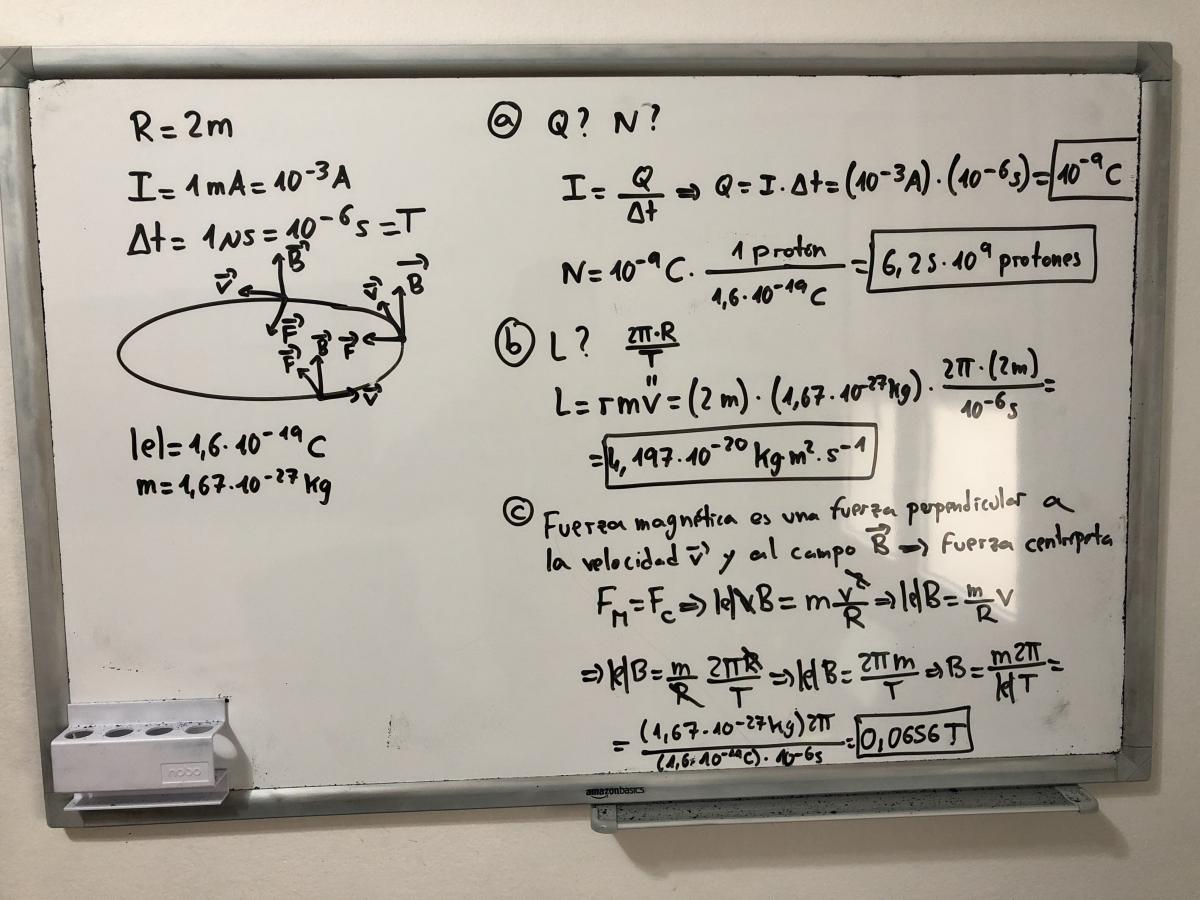 R = 2m
I = 1mA = 10⁻³A
Δt = 1Ns = 10⁻⁶s = T
B⃗
v⃗
F⃗
B⃗
v⃗
F⃗
B⃗
F⃗
v⃗
|e| = 1,6·10⁻¹⁹C
m = 1,67·10⁻²⁷kg
ⓐ Q? N?
I = Q/Δt ⇒ Q = I·Δt = (10⁻³A)·(10⁻⁶s) = 10⁻⁹C
N = 10⁻⁹C · 1 protón/1,6·10⁻¹⁹C = 6,25·10⁹ protones
ⓑ L? 2π·R/T
L = rmv = (2m)·(1,67·10⁻²⁷kg)·2π·(2m)/10⁻⁶s =
= 4,197·10⁻²⁰ kg m²·s⁻¹
ⓒ Fuerza magnética es una fuerza perpendicular a
la velocidad v⃗ y al campo B⃗ ⇒ Fuerza centrípeta
F_M = F_C ⇒ |e|vB = m v²/R ⇒ |e|B = m/R v
⇒ |e|B = m/R 2πR/T ⇒ |e|B = 2πm/T ⇒ B = m2π/|e|T =
= (1,67·10⁻²⁷kg)2π/(1,6·10⁻¹⁹C)·10⁻⁶s = 0,0656T
nobo
amazonbasics